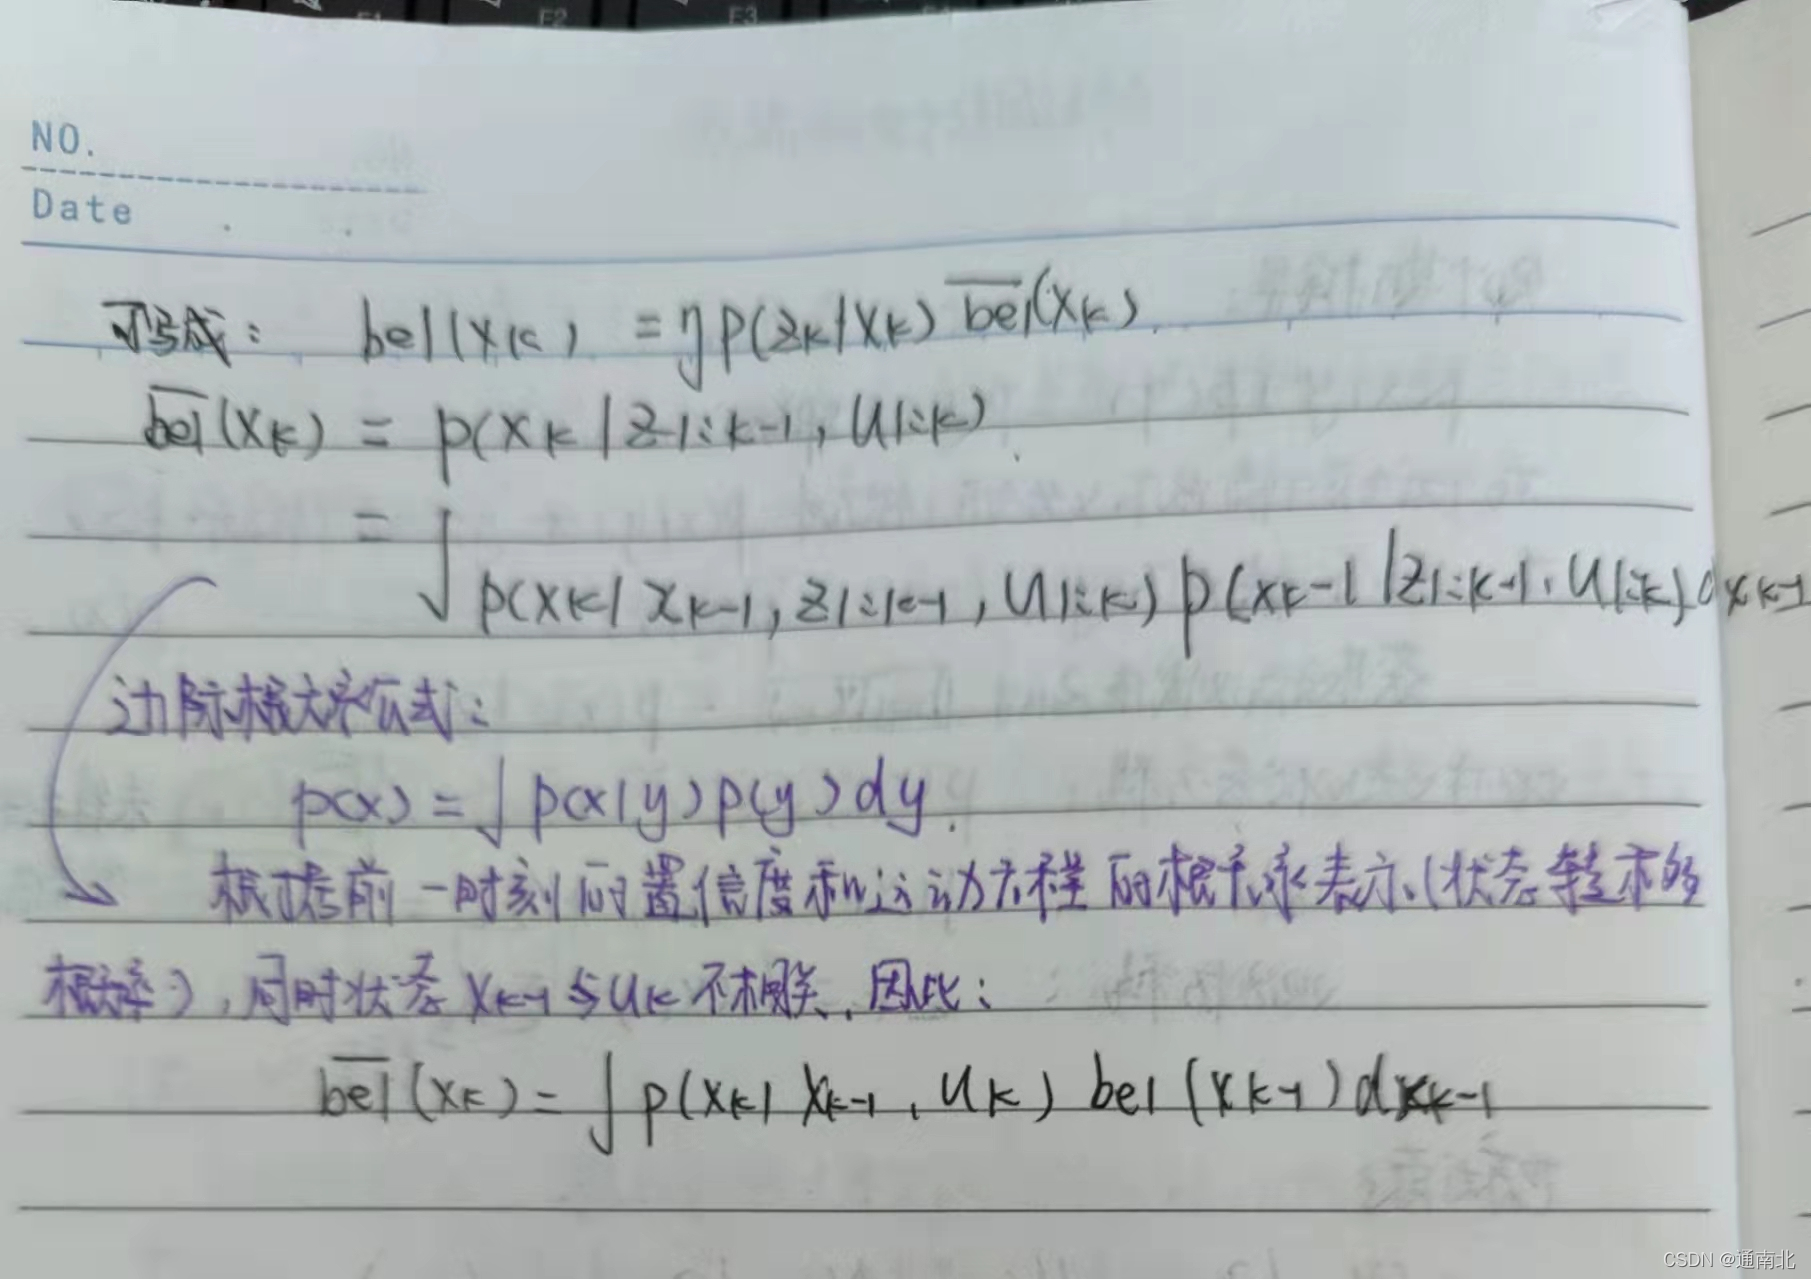 F1 F2 F3
NO.
Date
可写成： bel(xk) = ηp(zk|xk) b̅e̅l̅(xk)
b̅e̅l̅(xk) = p(xk|z1:k-1, u1:k)
= ∫p(xk|xk-1, z1:k-1, u1:k) p(xk-1|z1:k-1, u1:k) dxk-1
边际概率公式：
p(x) = ∫p(x|y)p(y)dy.
根据前一时刻的置信度和运动方程的概率来表示(状态转移的
概率)，同时状态xk-1与uk不相关，因此：
b̅e̅l̅(xk) = ∫p(xk|xk-1, uk) bel(xk-1)dxk-1
CSDN @通南北